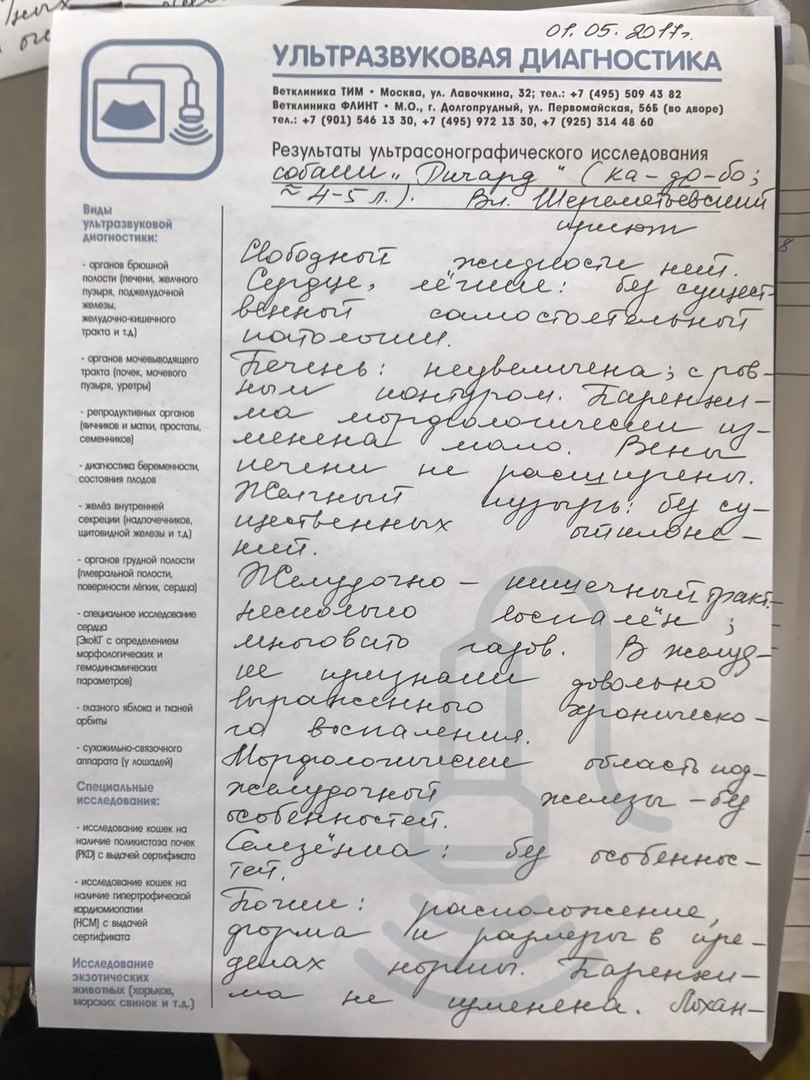 01.05.2017г.
УЛЬТРАЗВУКОВАЯ ДИАГНОСТИКА
Ветклиника ТИМ • Москва, ул. Лавочкина, 32; тел.: +7 (495) 509 43 82
Ветклиника ФЛИНТ • М.О., г. Долгопрудный, ул. Первомайская, 56Б (во дворе)
тел.: +7 (901) 546 13 30, +7 (495) 972 13 30, +7 (925) 314 48 60
Результаты ультрасонографического исследования
собаки „Ричард" (ка-де-бо;
≈ 4-5 л.). Вл. Шереметьевский
приют
Свободной жидкости нет.
Сердце, лёгкие: без сущест-
венной самостоятельной
патологии.
Печень: неувеличена; с ров-
ным контуром. Паренхи-
ма морфологически из-
менена мало. Вены
печени не расширены.
Желчный пузырь: без су-
щественных отклоне-
ний.
Желудочно-кишечный тракт-
несколько воспалён;
многовато газов. В желуд-
ке признаки довольно
выраженного хроническо-
го воспаления.
Морфологически область под-
желудочной железы - без
особенностей.
Селезёнка: без особеннос-
тей.
Почки: расположение,
форма и размеры в пре-
делах нормы. Паренхи-
ма не изменена. Лохан-
Виды
ультразвуковой
диагностики:
- органов брюшной
полости (печени, желчного
пузыря, поджелудочной
железы,
желудочно-кишечного
тракта и т.д)
- органов мочевыводящего
тракта (почек, мочевого
пузыря, уретры)
- репродуктивных органов
(яичников и матки, простаты,
семенников)
- диагностика беременности,
состояния плодов
- желёз внутренней
секреции (надпочечников,
щитовидной железы и т.д)
- органов грудной полости
(плевральной полости,
поверхности лёгких, сердца)
- специальное исследование
сердца
(ЭхоКГ с определением
морфологических и
гемодинамических
параметров)
- глазного яблока и тканей
орбиты
- сухожильно-связочного
аппарата (у лошадей)
Специальные
исследования:
- исследование кошек на
наличие поликистоза почек
(PKD) с выдачей сертификата
- исследование кошек на
наличие гипертрофической
кардиомиопатии
(HCM) с выдачей
сертификата
Исследование
экзотических
животных (хорьков,
морских свинок и т.д.)